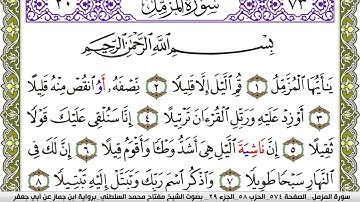 ٧٣ سُورَةُ المُزَّمِّل ٢٠
بِسْمِ ٱللَّهِ ٱلرَّحْمَٰنِ ٱلرَّحِيمِ
يَٰٓأَيُّهَا ٱلْمُزَّمِّلُ ١ قُمِ ٱلَّيْلَ إِلَّا قَلِيلًا ٢ نِّصْفَهُۥٓ أَوُ ٱنقُصْ مِنْهُ قَلِيلًا
٣ أَوْ زِدْ عَلَيْهِ وَرَتِّلِ ٱلْقُرْءَانَ تَرْتِيلًا ٤ إِنَّا سَنُلْقِى عَلَيْكَ قَوْلًا
ثَقِيلًا ٥ إِنَّ نَاشِيَةَ ٱلَّيْلِ هِىَ أَشَدُّ وَطْـًٔا وَأَقْوَمُ قِيلًا ٦ إِنَّ لَكَ فِى
ٱلنَّهَارِ سَبْحًا طَوِيلًا ٧ وَٱذْكُرِ ٱسْمَ رَبِّكَ وَتَبَتَّلْ إِلَيْهِ تَبْتِيلًا ٨
سورة المزمل . الصفحة ٥٧٤ . الحزب ٥٨ . الجزء ٢٩ . بصوت الشيخ مفتاح محمد السلطني . برواية ابن جماز عن أبي جعفر